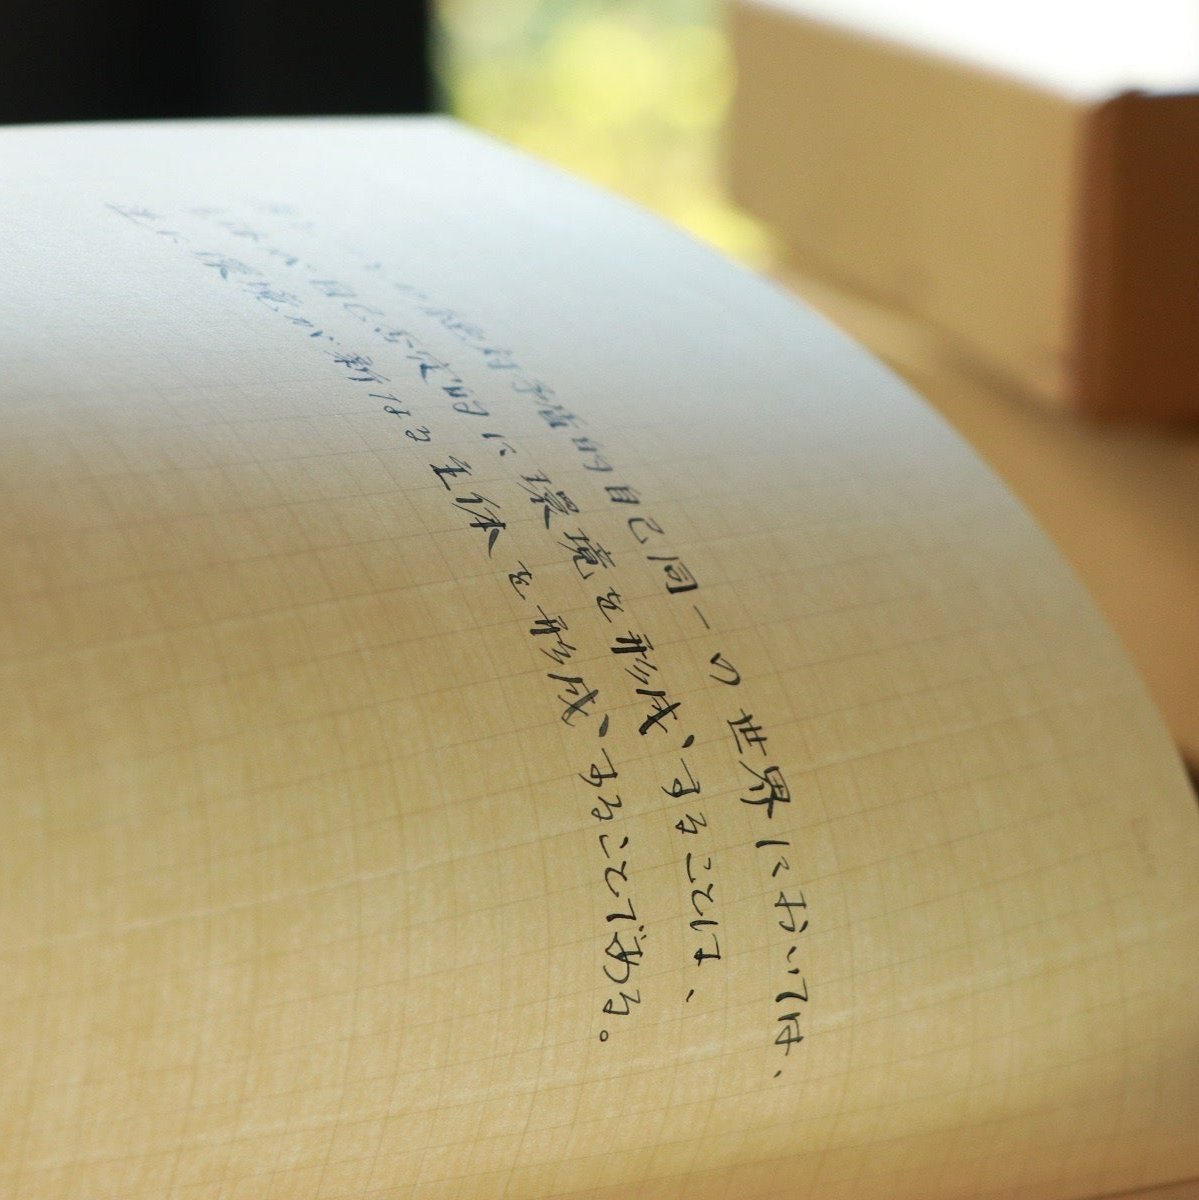 絶対矛盾的自己同一の世界においては、
主体が自己否定的に環境を形成することは、
逆に環境が新なる主体を形成することである。